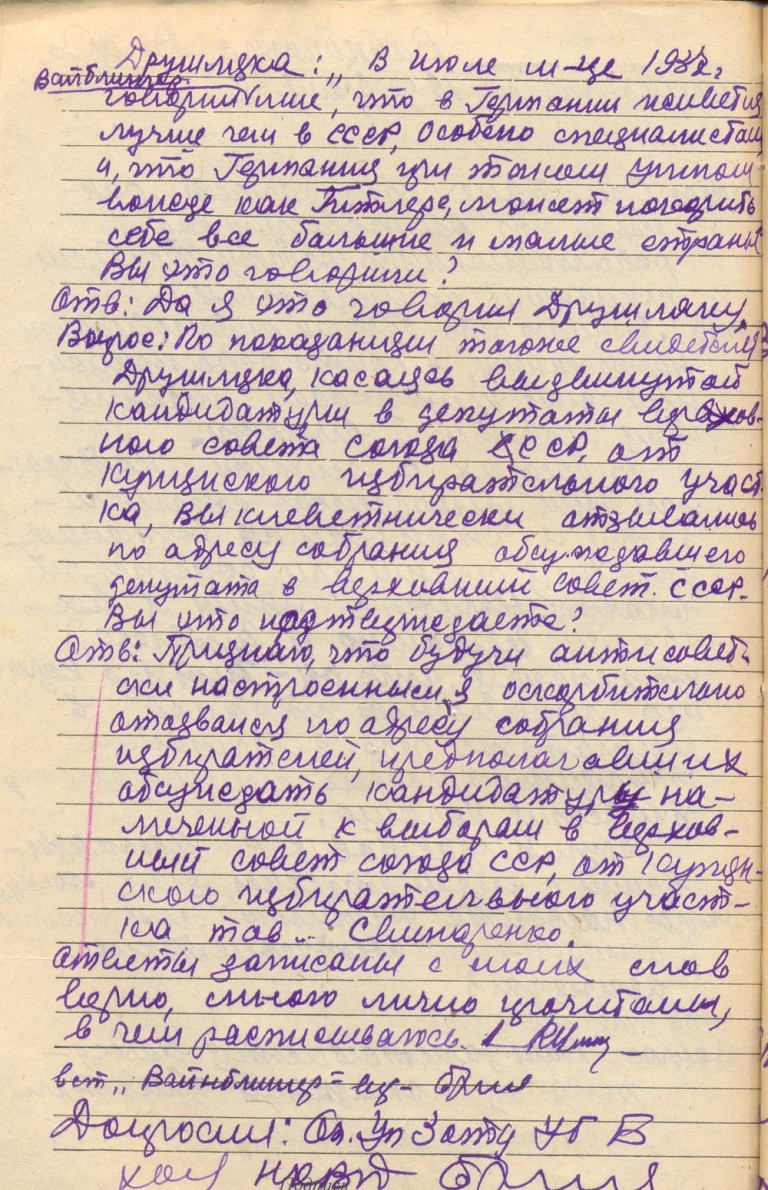 Друшляка: „В июле м-це 1937 г.
Вайблингер
говорили мне, что в Германии живется
лучше чем в СССР, особено специалистам
и, что Германия при таком умном
вожде как Гитлере, может покорить
себе все большие и малые страны
Вы это говорили?
Отв: Да я это говорил Друшляку.
Вопрос: По показаниям тогоже свидетеля
Друшляка, касаясь выдвинутой
кандидатуры в депутаты верхов-
ного совета союза СССР, от
избирательного участ-
ка, Вы клеветнически отзывались
по адресу собрания обсуждавшего
депутата в верховный совет. СССР.
Вы это подтверждаете?
Отв: Признаю, что будучи антисовет-
ски настроенным, я оскорбительно
отозвался по адресу собрания
избирателей, предполагавших
обсуждать кандидатуры на-
меченной к выборам в верхов-
ный совет союза ССР, от
ского избирательного участ-
ка тов.
ответы записаны с моих слов
верно, мною лично прочитаны,
в чем расписываюсь.
вст „Вайнблингер"
Допросил: Оп. Уп